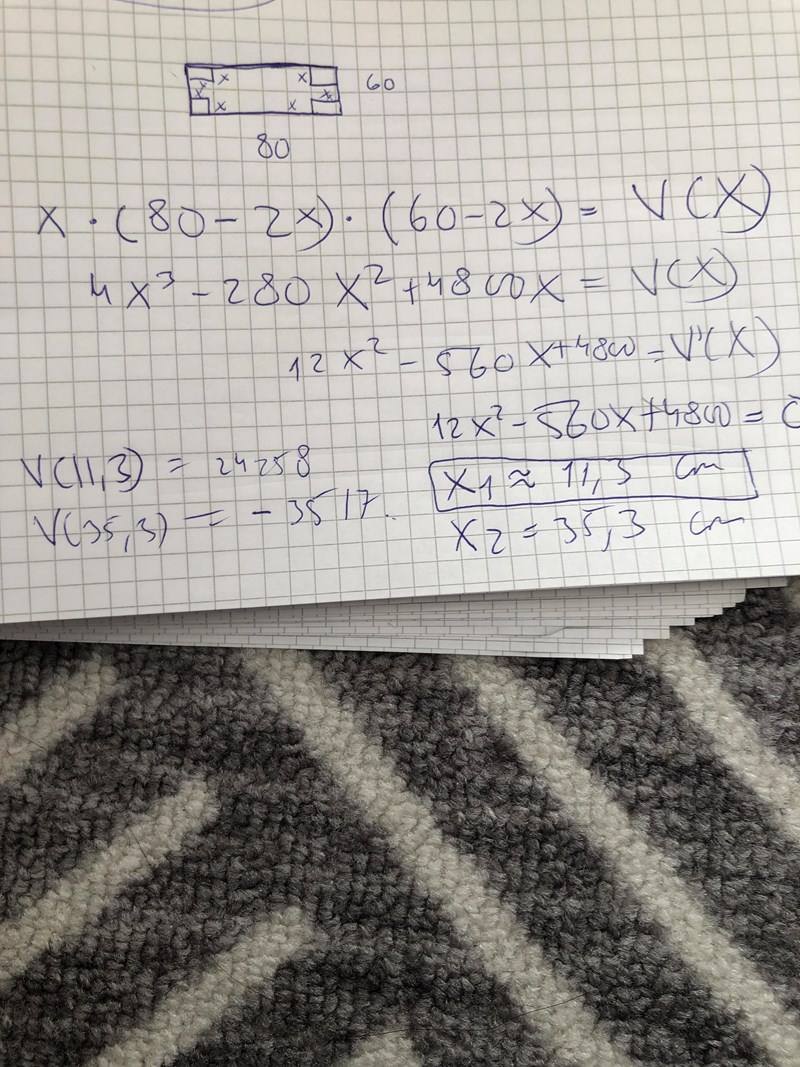 x x
60
x x
x x
80
x · (80 - 2x) · (60 - 2x) = V(X)
4x³ - 280x² + 4800x = V(X)
12x² - 560x + 4800 = V'(X)
12x² - 560x + 4800 = 0
V(11,3) = 24258
x1 ≈ 11,3 cm
V(35,3) = - 3517.
x2 = 35,3 cm